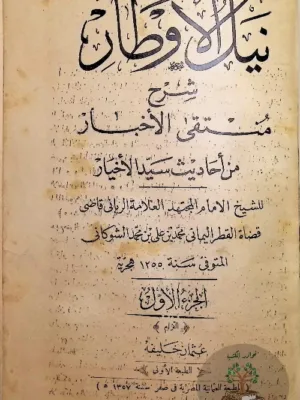 نيل الأوطار
شرح
منتقى الأخبار
من أحاديث سيد الأخيار
للشيخ الامام المجتهد العلامة الرباني قاضي
قضاة القطر اليماني محمد بن علي بن محمد الشوكاني
المتوفى سنة ١٢٥٥ هجرية
الجزء الأول
التزام
عثمان خليفة
الطبعة الأولى
بالمطبعة العثمانية المصرية في صفر سنة ١٣٥٧ ه